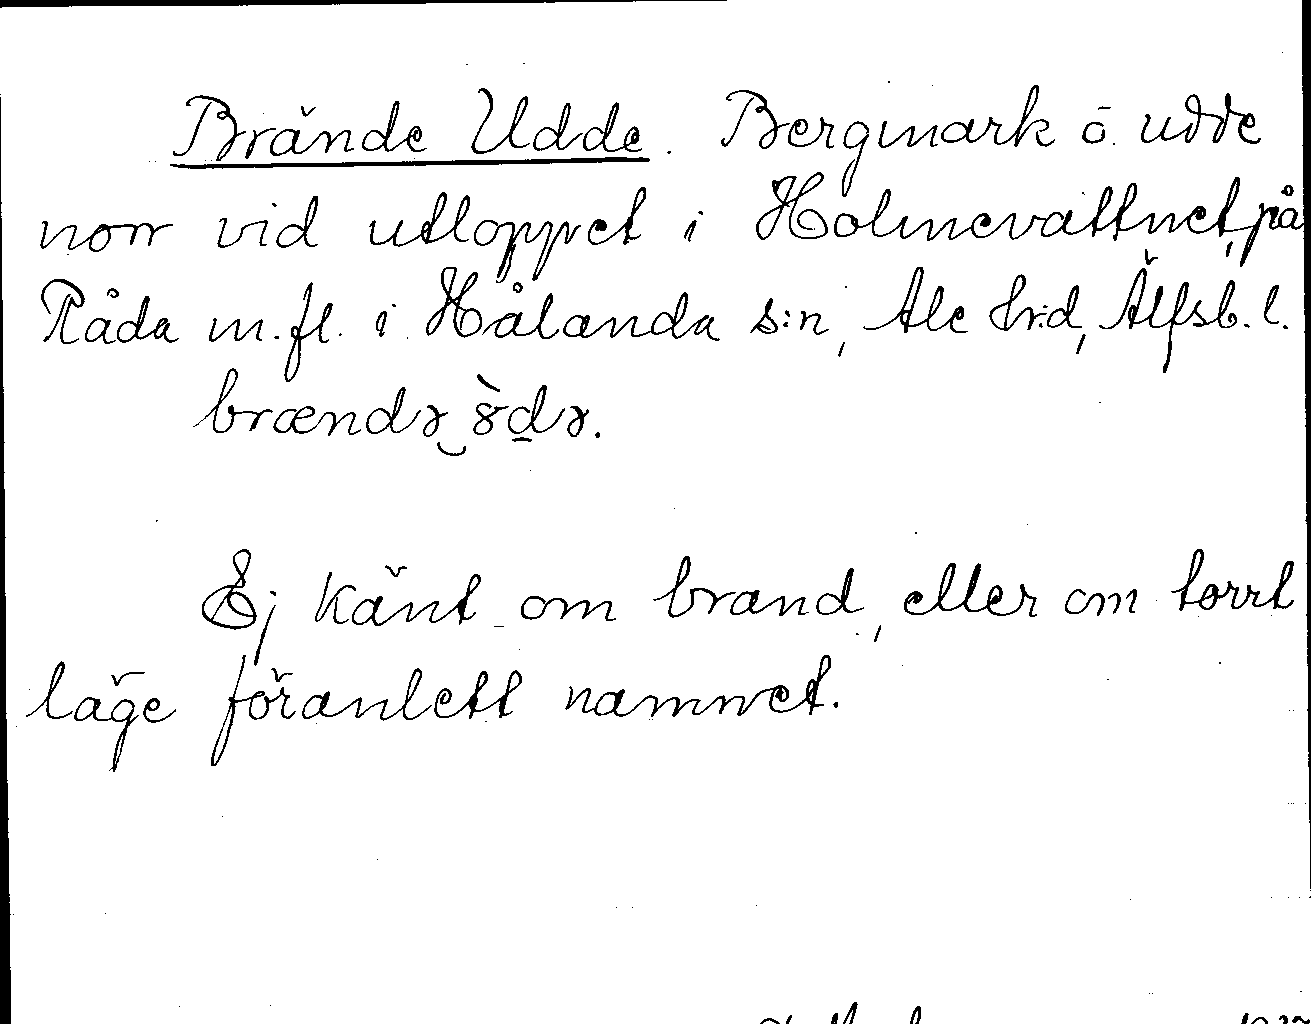 Brände Udde. Bergmark o. udde
norr vid utloppet i Holmevattnet, på
Råda m.fl. i Hålanda s:n, Ale hr:d, Älfsb. l.
brændɤ‿ȣ̀d̲ɤ.
Ej känt om brand, eller om torrt
läge föranlett namnet.